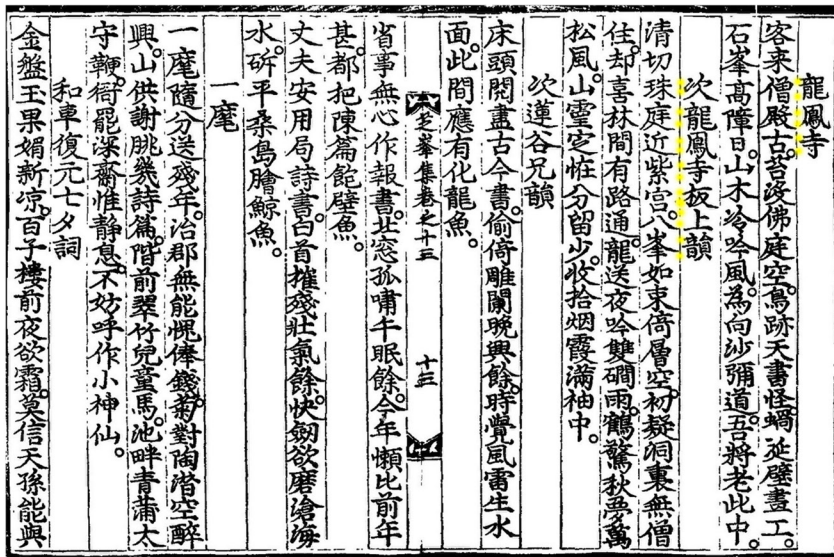 龍鳳寺
客来僧殿古。苔沒佛庭空。鳥跡天書怪。蝸涎壁畫工。
石峯高障日。山木冷吟風。為向沙彌道。吾將老此中。
次龍鳳寺板上韻
清切珠庭近紫宮。八峯如束倚層空。初疑洞裏無僧
住。却喜林間有路通。龍送夜吟雙磵雨。鶴驚秋夢萬
松風。山靈定恠分留少。收拾烟霞滿袖中。
次蓮谷兄韻
床頭閱盡古今書。偷倚雕闌晚興餘。時覺風雷生水
面。此間應有化龍魚。
芝峯集卷之十三
十三
省事無心作報書。北窓孤嘯午眠餘。今年懶比前年
甚。都把陳篇飽壁魚。
丈夫安用局詩書。白首摧殘壯氣餘。快劒欲磨滄海
水。斫平桑島膾鯨魚。
一麾
一麾隨分送殘年。治郡無能愧俸錢。菊對陶潛空醉
興。山供謝朓幾詩篇。階前翠竹兒童馬。池畔青蒲太
守鞭。衙罷深齋惟靜息。不妨呼作小神仙。
和車復元七夕詞
金盤玉果娟新凉。百子樓前夜欲霜。莫信天孫能與